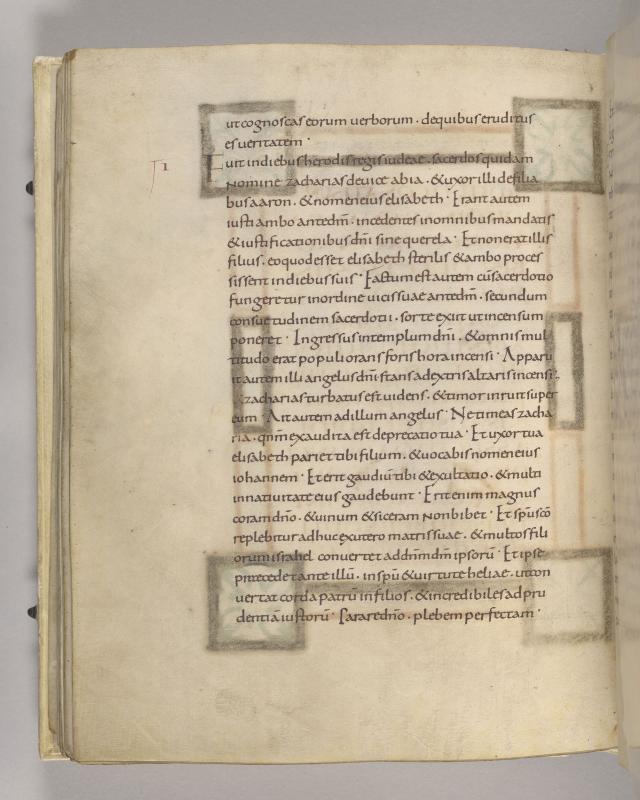 ut cognoscas eorum uerborum · de quibus eruditus
es ueritatem ·
Γ I
Fuit in diebus herodis regis iudeae · sacerdos quidam
nomine zacharias de uice abia · & uxor illi de filia
bus aaron · & nomen eius elisabeth · Erant autem
iusti ambo ante dm̄ · incedentes in omnibus mandatis
& iustificationibus dn̄i sine querela · Et non erat illis
filius · eo quod esset elisabeth sterilis & ambo proces
sissent in diebus suis · Factum est autem cū sacerdotio
fungeretur in ordine uicis suae ante dm̄ · secundum
consuetudinem sacerdotii · sorte exiit ut incensum
poneret · Ingressus in templum dn̄i · & omnis mul
titudo erat populi orans foris hora incensi · Apparu
it autem illi angelus dn̄i stans a dextris altaris incensi ·
& zacharias turbatus est uidens · & timor inruit super
eum · Ait autem ad illum angelus · Ne timeas zacha
ria · qnm̄ exaudita est deprecatio tua · Et uxor tua
elisabeth pariet tibi filium · & uocabis nomen eius
iohannem · Et erit gaudiū tibi & exultatio · & multi
in natiuitate eius gaudebunt · Erit enim magnus
coram dn̄o · & uinum & siceram non bibet · Et sp̄u sc̄o
replebitur adhuc ex utero matris suae · & multos fili
orum israhel conuertet ad dn̄m dm̄ ipsorū · Et ipse
praecedet ante illū · in sp̄u & uirtute heliae · ut con
uertat corda patrū in filios · & incredibiles ad pru
dentiā iustorū · Parare dn̄o · plebem perfectam ·